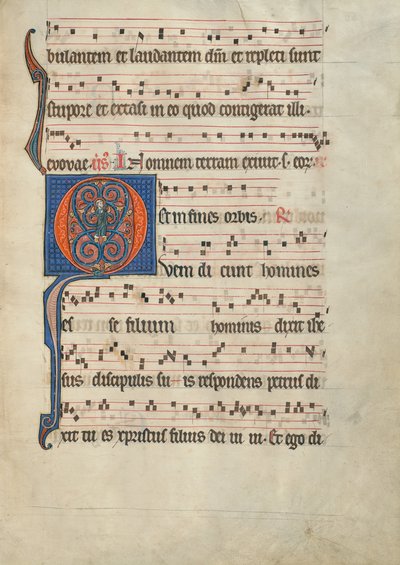 bulantem et laudantem dm et repleti sunt
stupore et extasi in eo quod contigerat illi.
evovae. In omnem terram exivit s. eor.
Et in fines orbis. R
Quem di cunt homines
es se filium hominis dixit ihe
sus discipulis su is respondens petrus di
xit tu es xpristus filius dei ui ui. Et ego di